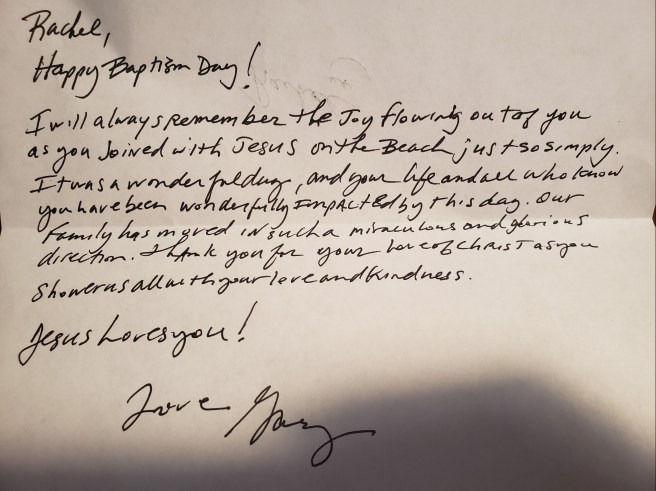 Rachel,
Happy Baptism Day!
I will always remember the Joy flowing out of you
as you Joined with Jesus on the Beach just so simply.
It was a wonderful day, and your life and all who know
you have been wonderfully impacted by this day. Our
family has moved in such a miraculous and glorious
direction. Thank you for your love of Christ as you
shower us all with your love and kindness.
Jesus Loves you!
Love Gary